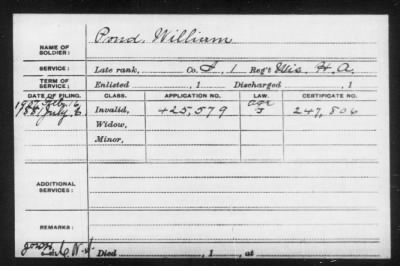 NAME OF SOLDIER: Pond, William
SERVICE: Late rank, Co. I, 1 Reg't Wis. H. A.
TERM OF SERVICE: Enlisted , 1 Discharged , 1
DATE OF FILING. CLASS. APPLICATION NO. LAW. CERTIFICATE NO.
1907 Feby. 16
1881 July 6 Invalid, 425,579 247,806
Widow,
Minor,
ADDITIONAL SERVICES:
REMARKS:
Died , 1 , at